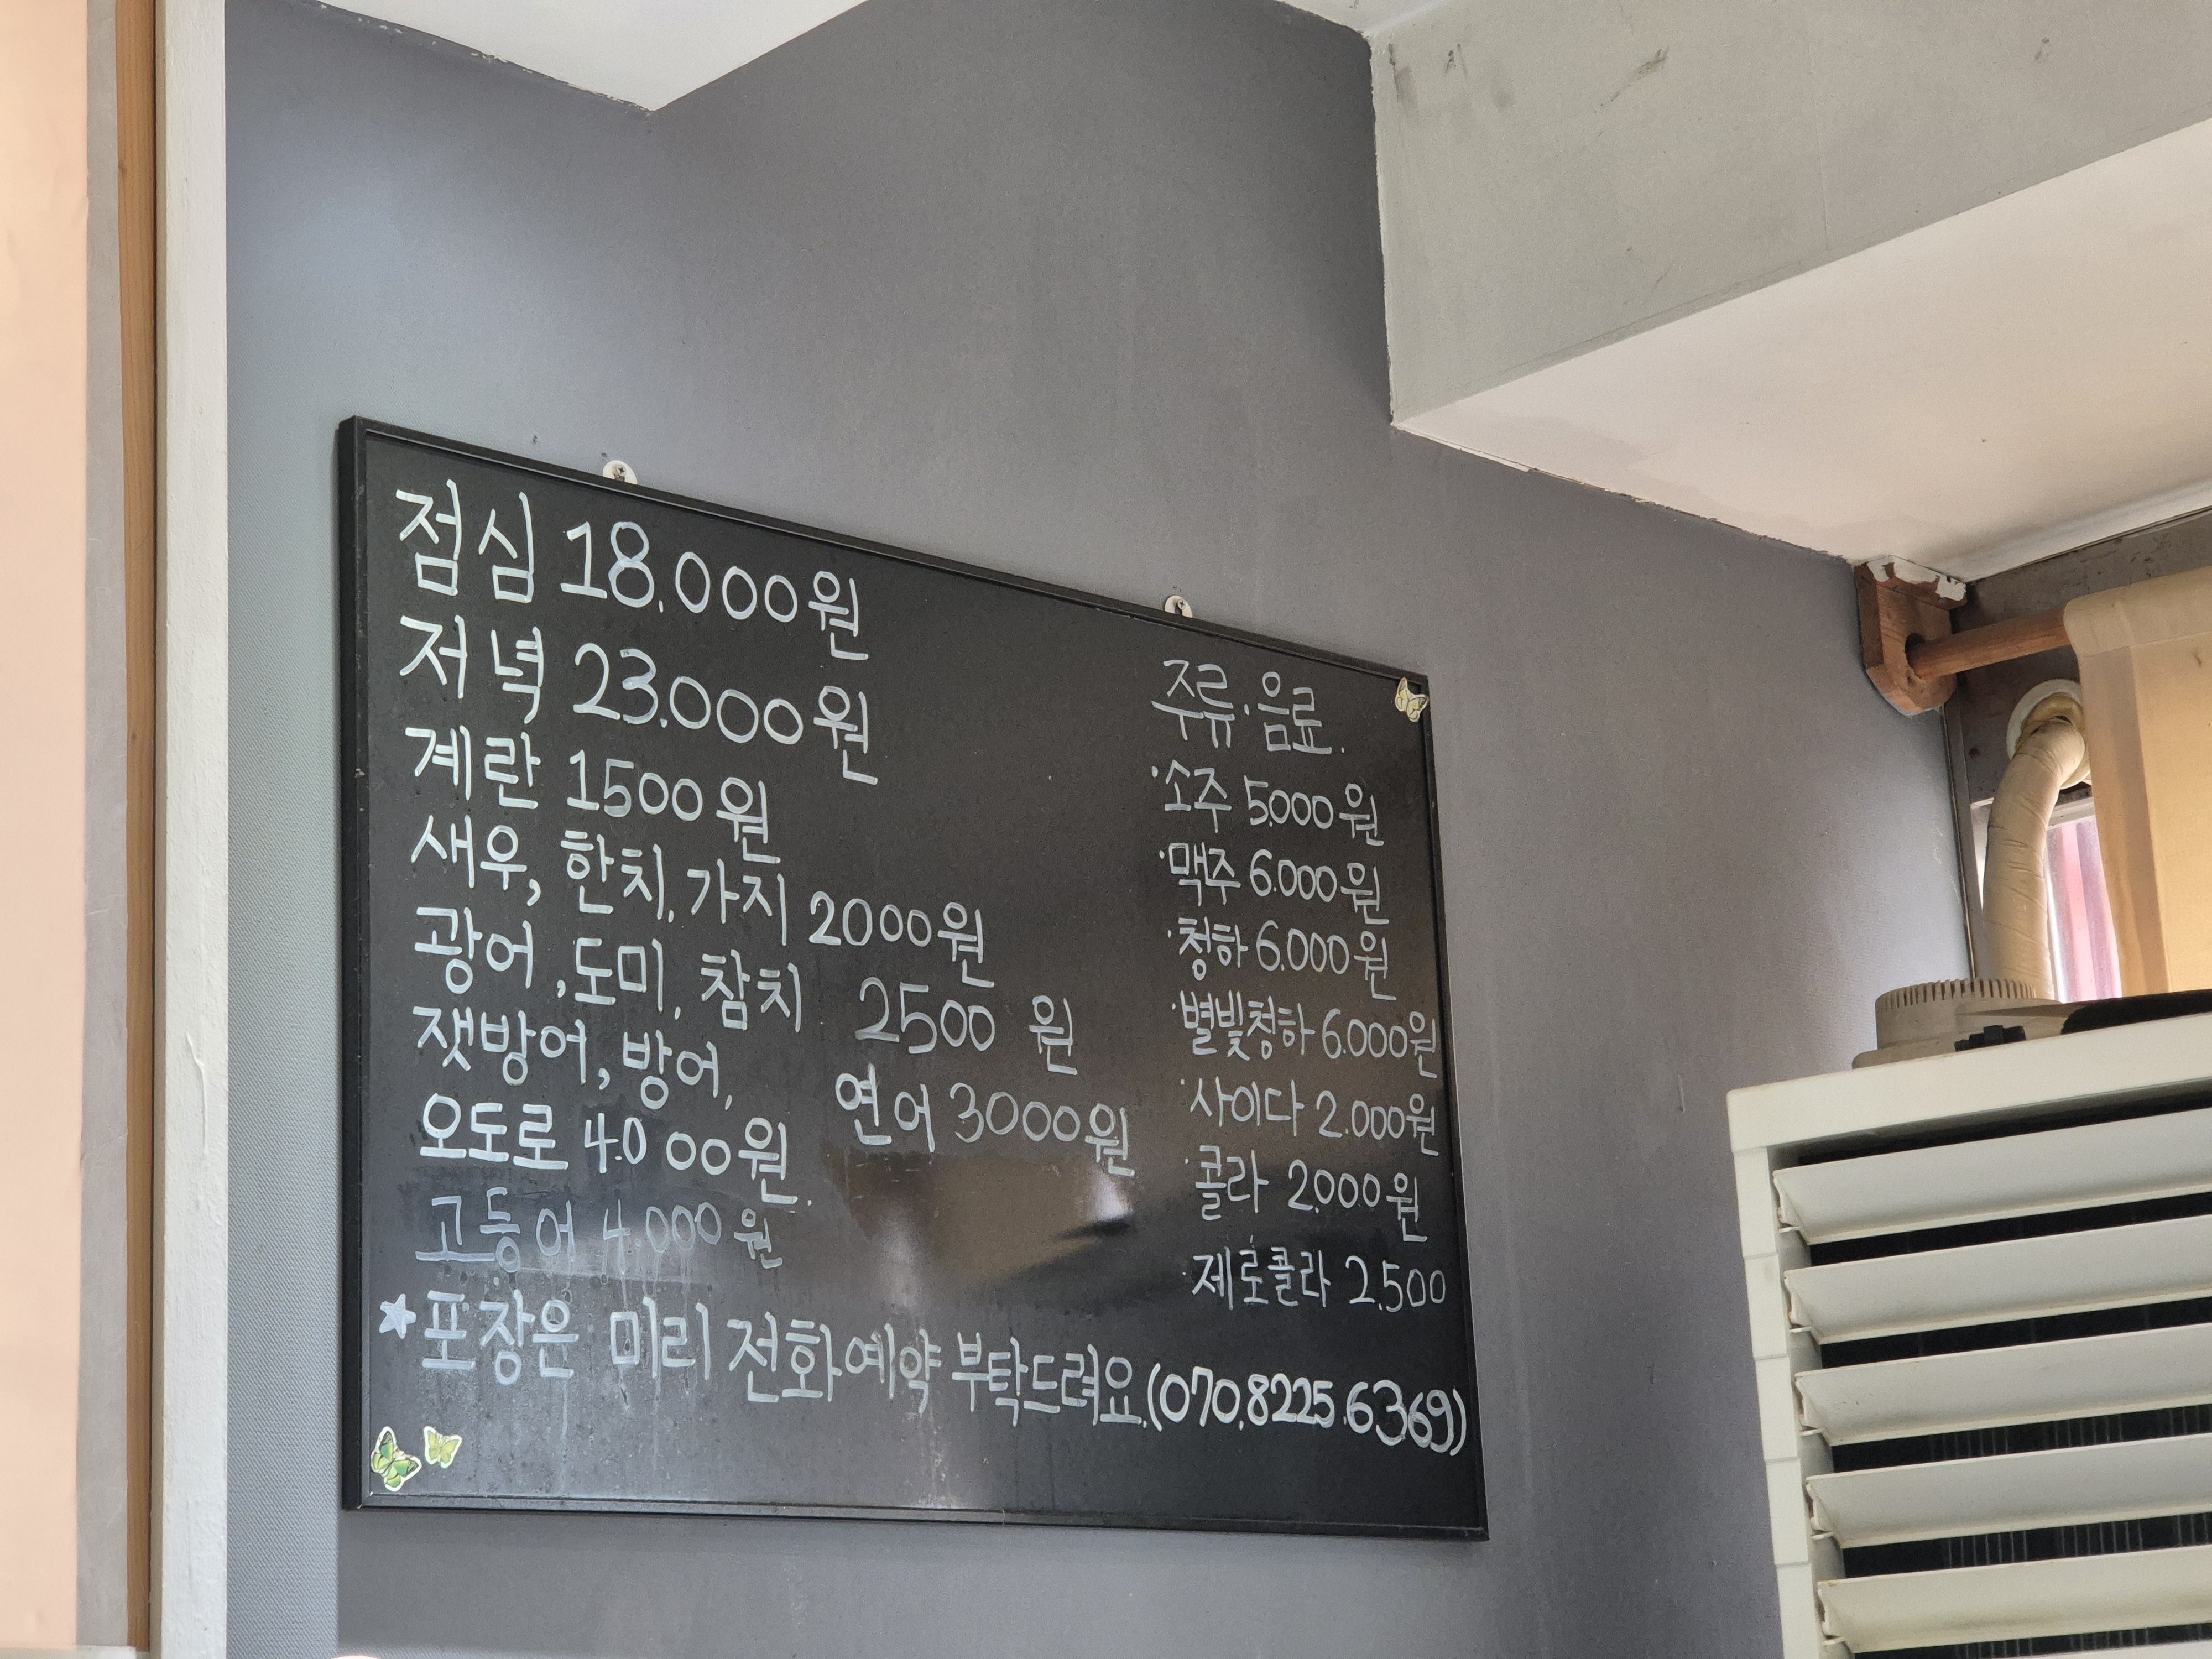 점심 18.000원
저녁 23.000원
계란 1500원
새우, 한치, 가지 2000원
광어, 도미, 참치 2500 원
잿방어, 방어, 연어 3000원
오도로 4.000원.
고등어 4.000원
★포장은 미리 전화예약 부탁드려요.(070.8225.6369)
주류·음료.
·소주 5.000원
·맥주 6.000원
·청하 6.000원
·별빛청하 6.000원
·사이다 2.000원
·콜라 2.000원
·제로콜라 2.500